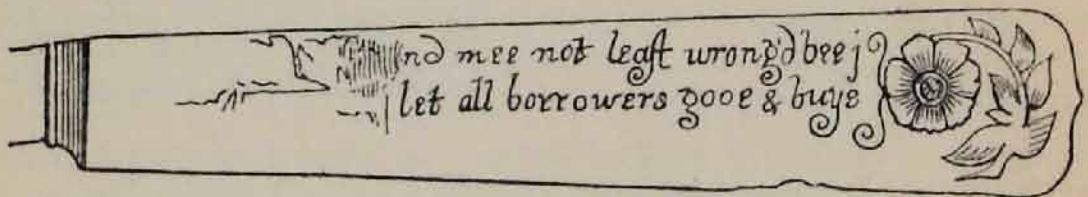 nd mee not leaſt wrong'd bee j
let all borrowers gooe & buye